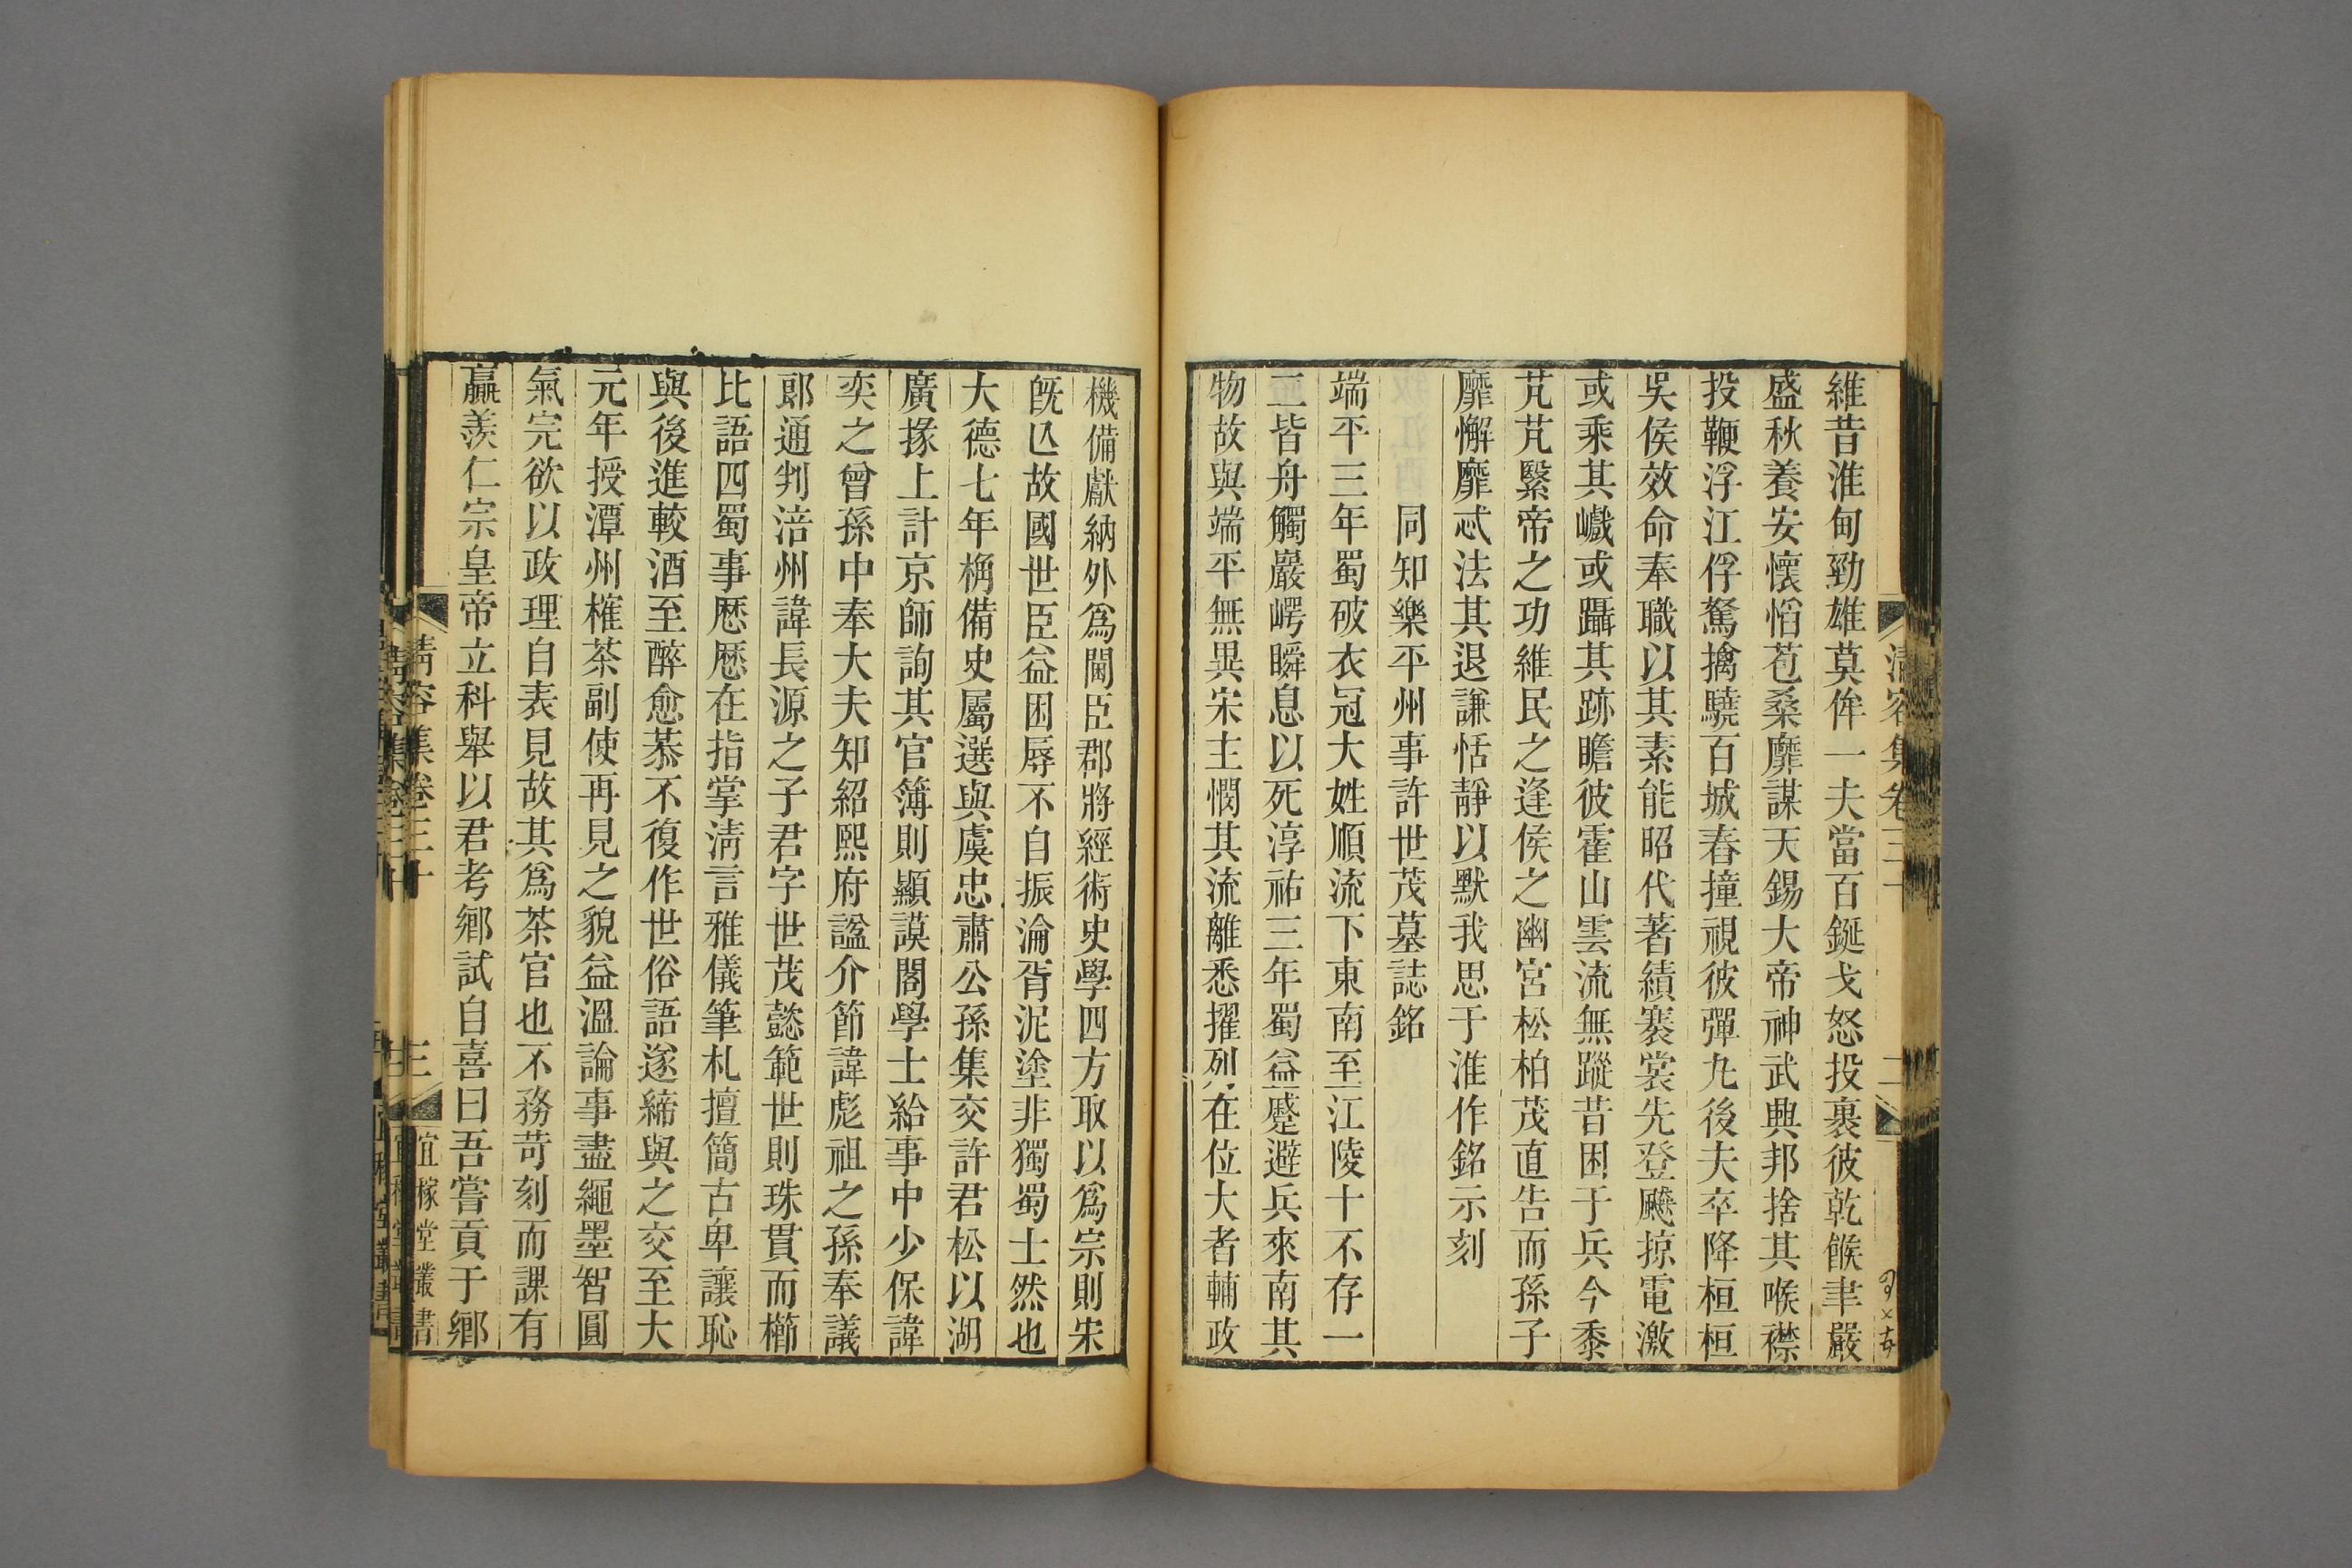 維昔淮甸勁雄莫侔一夫當百鋋戈怒投裹彼乾餱聿嚴
盛秋養安懷慆苞桑靡謀天錫大帝神武興邦捨其喉襟
投鞭浮江俘駑擒驍百城舂撞視彼彈丸後夫卒降桓桓
吳侯效命奉職以其素能昭代著績褰裳先登飈掠電激
或乘其巇或躡其跡瞻彼霍山雲流無蹤昔困于兵今黍
芃芃繄帝之功維民之逢侯之幽宮松柏茂直告而孫子
靡懈靡忒法其退謙恬靜以默我思于淮作銘示刻
同知樂平州事許世茂墓誌銘
端平三年蜀破衣冠大姓順流下東南至江陵十不存一
二皆舟觸巖崿瞬息以死淳祐三年蜀益蹙避兵來南其
物故與端平無異宋主憫其流離悉擢列在位大者輔政
清容集卷三十
二
機備獻納外爲閫臣郡將經術史學四方取以爲宗則宋
旣亾故國世臣益困辱不自振淪胥泥塗非獨蜀士然也
大德七年桷備史屬選與虞忠肅公孫集交許君松以湖
廣掾上計京師詢其官簿則顯謨閣學士給事中少保諱
奕之曾孫中奉大夫知紹熙府諡介節諱彪祖之孫奉議
郎通判涪州諱長源之子君字世茂懿範世則珠貫而櫛
比語四蜀事歷歷在指掌淸言雅儀筆札擅簡古卑讓恥
與後進較酒至醉愈恭不復作世俗語遂締與之交至大
元年授潭州榷茶副使再見之貌益溫論事盡繩墨智圓
氣完欲以政理自表見故其爲茶官也不務苛刻而課有
贏羡仁宗皇帝立科舉以君考鄉試自喜曰吾嘗貢于鄉
清容集卷三十
三
宜稼堂叢書